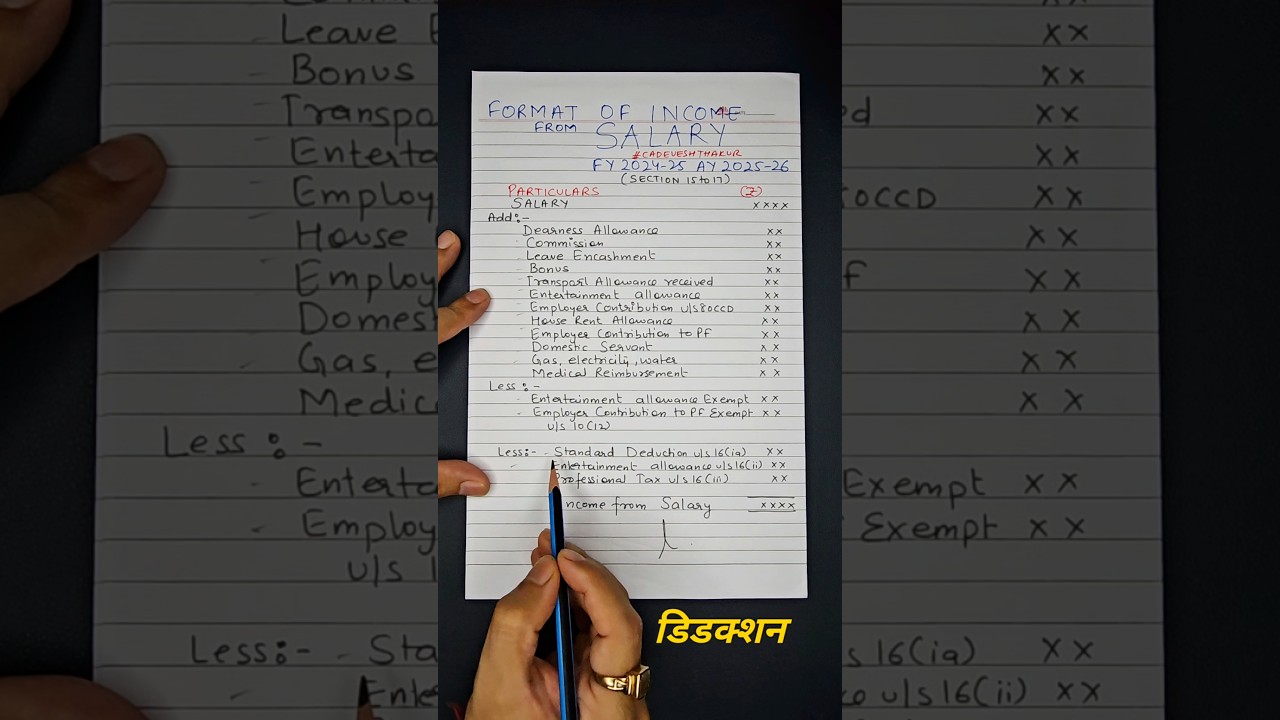 FORMAT OF INCOME
FROM SALARY
#CADEVESHTHAKUR
FY 2024-25 AY 2025-26
(SECTION 15 to 17)
PARTICULARS (₹)
SALARY xxxx
Add:-
Dearness Allowance xx
- Commission xx
- Leave Encashment xx
- Bonus xx
- Transport Allowance received xx
- Entertainment allowance xx
- Employer Contribution u/s 80CCD xx
- House Rent Allowance xx
- Employer Contribution to Pf xx
- Domestic Servant xx
- Gas, electricity, water xx
- Medical Reimbursement xx
Less:-
- Entertainment allowance Exempt xx
- Employer Contribution to Pf Exempt xx
u/s 10(12)
Less:- - Standard Deduction u/s 16(ia) xx
- Entertainment allowance u/s 16(ii) xx
Professional Tax u/s 16(iii) xx
Income from Salary xxxx
डिडक्शन